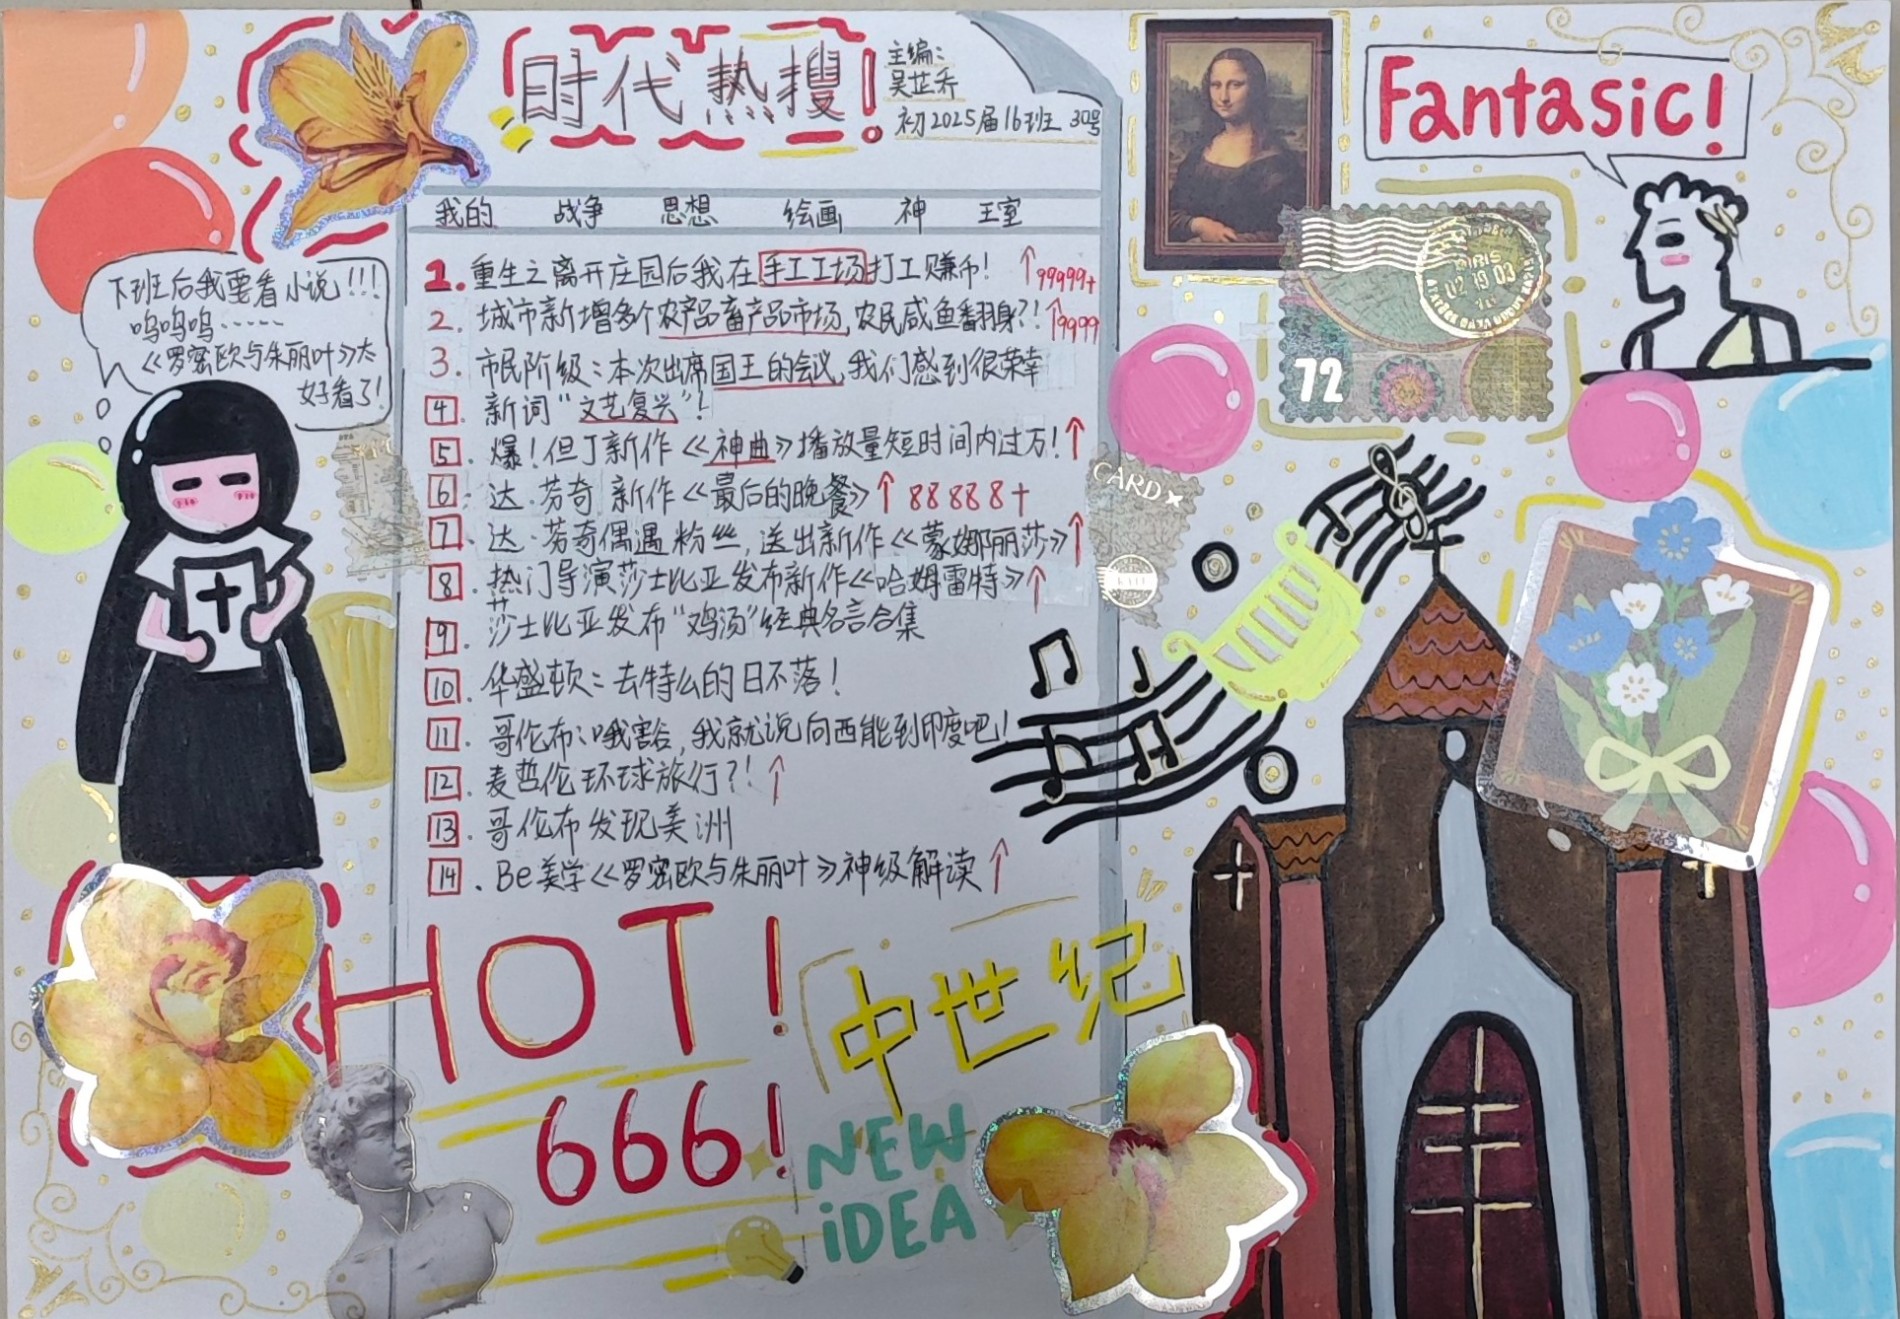 时代热搜!
主编:
吴芷乔
初2025届16班 30号
我的 战争 思想 绘画 神 王室
1. 重生之离开庄园后我在手工工场打工赚币! ↑99999+
2. 城市新增多个农产品畜产品市场,农民咸鱼翻身?! ↑9999
3. 市民阶级:本次出席国王的会议,我们感到很荣幸
4. 新词“文艺复兴”!
5. 爆!但丁新作《神曲》播放量短时间内过万!↑
6. 达·芬奇 新作《最后的晚餐》↑ 88888+
7. 达·芬奇偶遇粉丝,送出新作《蒙娜丽莎》↑
8. 热门导演莎士比亚发布新作《哈姆雷特》↑
9. 莎士比亚发布“鸡汤”经典名言合集
10. 华盛顿:去特么的日不落!
11. 哥伦布:哦害合,我就说向西能到印度吧!
12. 麦哲伦环球旅行?!↑
13. 哥伦布发现美洲
14. Be美学《罗密欧与朱丽叶》神级解读↑
HOT!
666!
中世纪
NEW
iDEA
下班后我要看小说!!!
呜呜呜……
《罗密欧与朱丽叶》太
好看了!
Fantasic!
PARIS
02 19 03
72
CARD